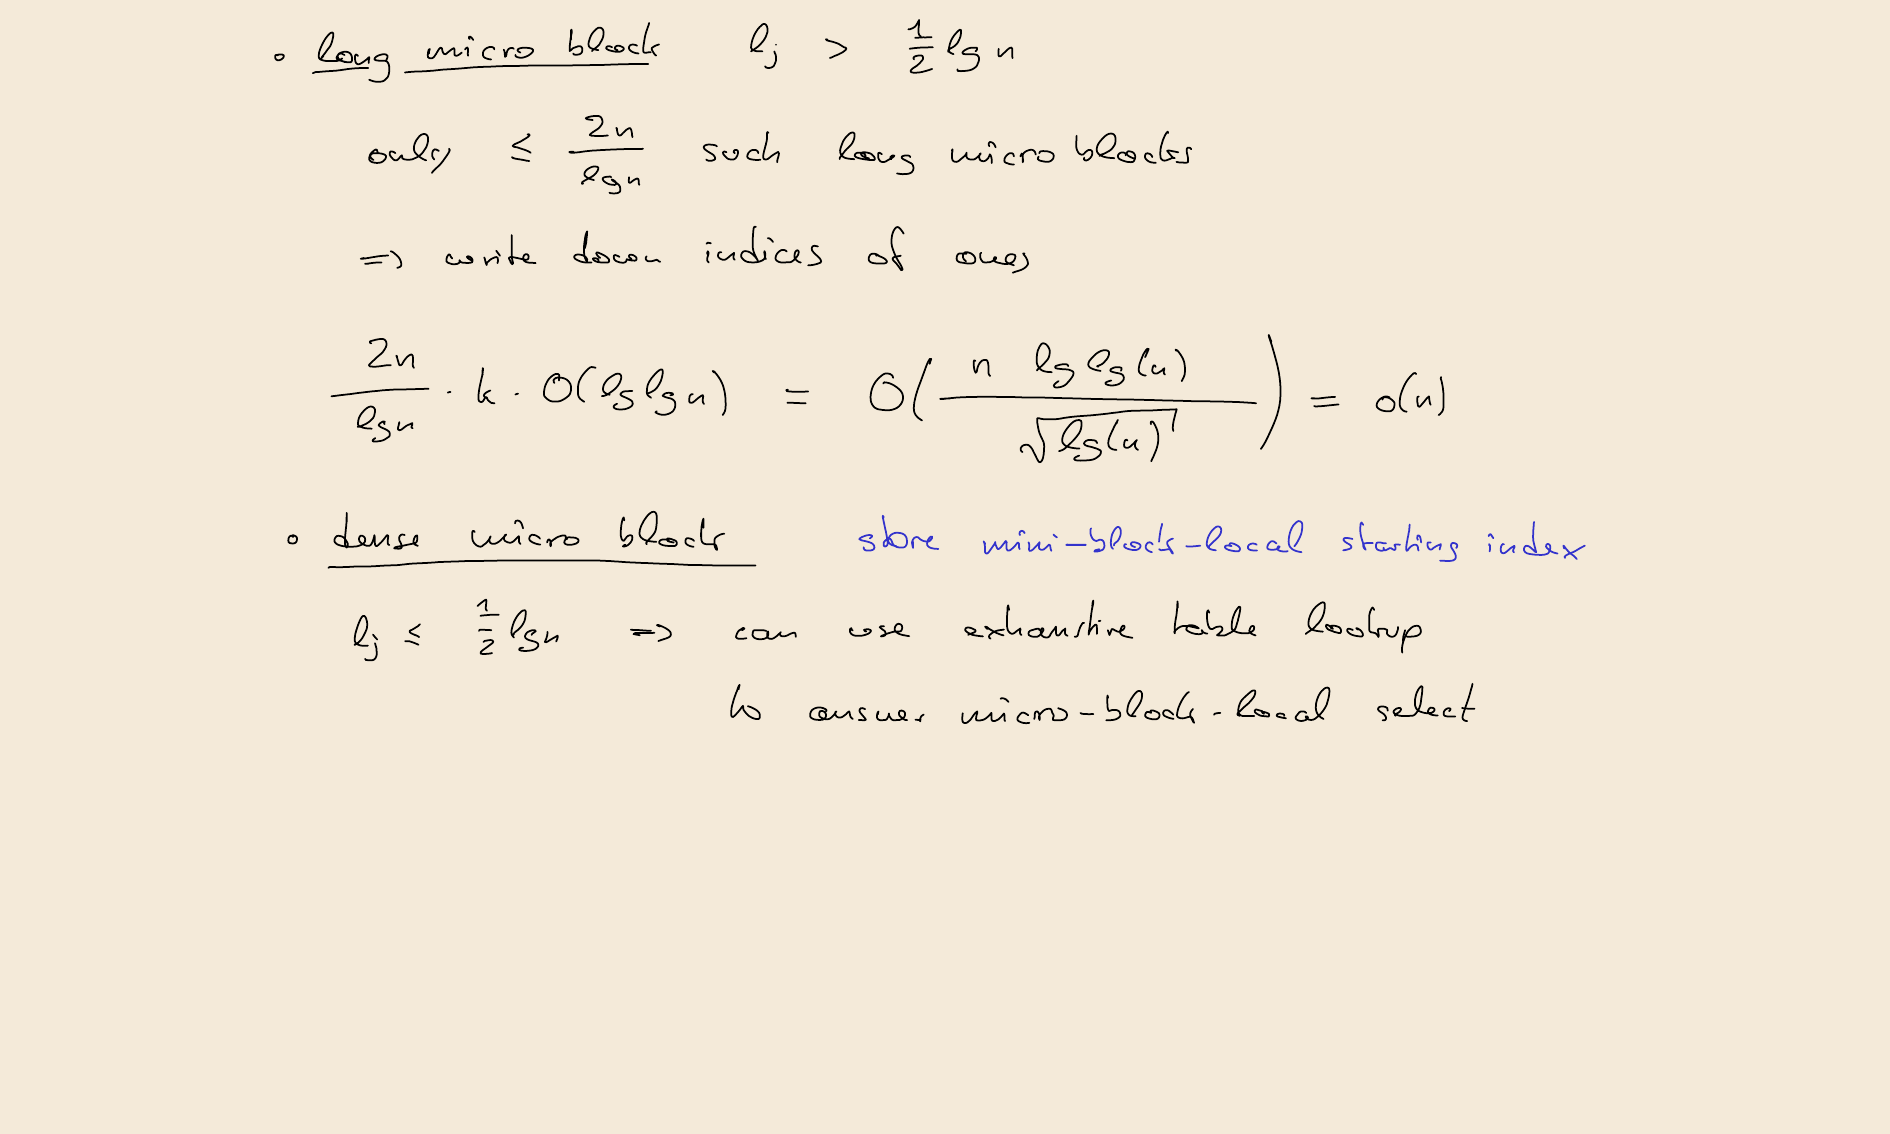 • long micro block ℓj > 1/2 lg n
only ≤ 2n/lg n such long micro blocks
=> write down indices of ones
2n/lg n · k · O(lg lg n) = O( n lg lg(n) / √lg(n) ) = o(n)
• dense micro block store mini-block-local starting index
ℓj ≤ 1/2 lg n => can use exhaustive table lookup
to answer micro-block-local select